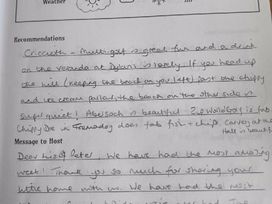 Weather
Recommendations
Criccieth - Multi golf is great fun and a drink
on the veranda at Dylans is lovely. If you head up
the hill (keeping the beach on your left) past the chippy
and ice cream parlour the beach on the other side is
super quiet! Abersoch is beautiful. Zip World is fab
Chippy Dre in Tremadog does fab fish + chips. Carvery at
Hall is beautiful
Message to Host
Dear Lisa & Peter, We have had the most amazing
week! Thank you so much for sharing your
little home with us. We have had the most